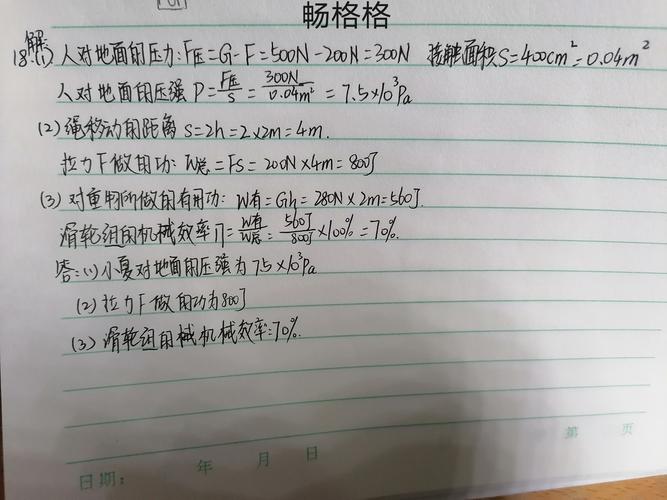 畅格格
解
18.(1) 人对地面的压力:F压=G-F=500N-200N=300N 接触面积S=400cm²=0.04m²
人对地面的压强 P=F压/S=300N/0.04m²=7.5×10³Pa
(2) 绳移动的距离 s=2h=2×2m=4m.
拉力F做的功: W总=Fs=200N×4m=800J
(3) 对重物所做的有用功: W有=Gh=280N×2m=560J.
滑轮组的机械效率η=W有/W总=560J/800J×100%=70%.
答:(1)小夏对地面的压强为7.5×10³Pa
(2)拉力F做的功为800J
(3)滑轮组的械机械效率:70%.
第 页
日期: 年 月 日